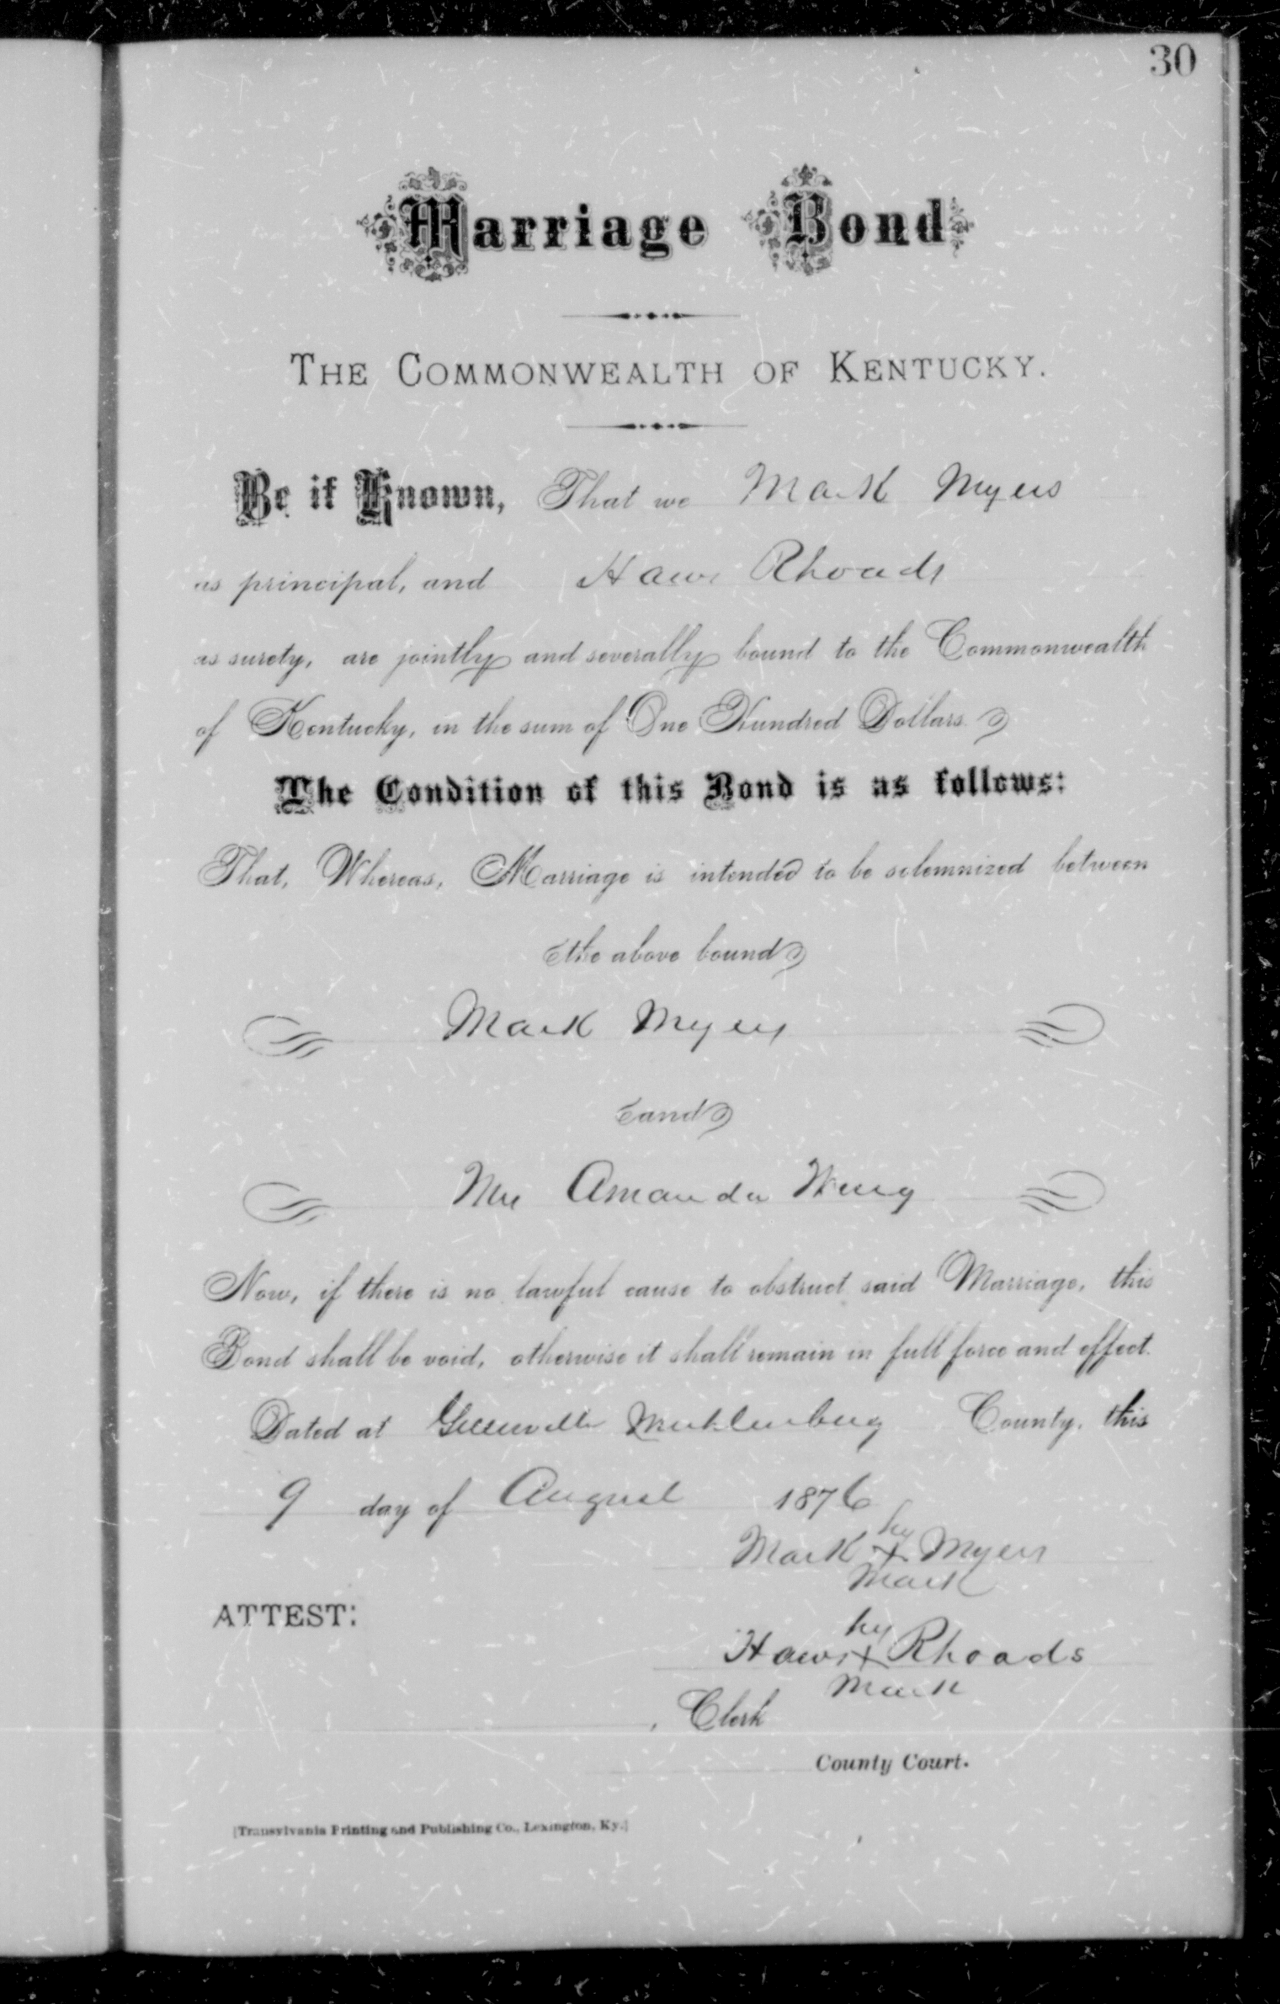 30
Marriage Bond
THE COMMONWEALTH OF KENTUCKY.
Be it Known, That we Mark Myers
as principal, and Haws Rhoads
as surety, are jointly and severally bound to the Commonwealth
of Kentucky, in the sum of One Hundred Dollars.
The Condition of this Bond is as follows:
That, Whereas, Marriage is intended to be solemnized between
the above bound
Mark Myers
and
Mrs Amanda
Now, if there is no lawful cause to obstruct said Marriage, this
Bond shall be void, otherwise it shall remain in full force and effect.
Dated at Greenville Muhlenburg County, this
9 day of August 1876
his
Mark X Myers
Mark
ATTEST:
his
Haws X Rhoads
Mark
, Clerk
County Court.
[Transylvania Printing and Publishing Co., Lexington, Ky.]